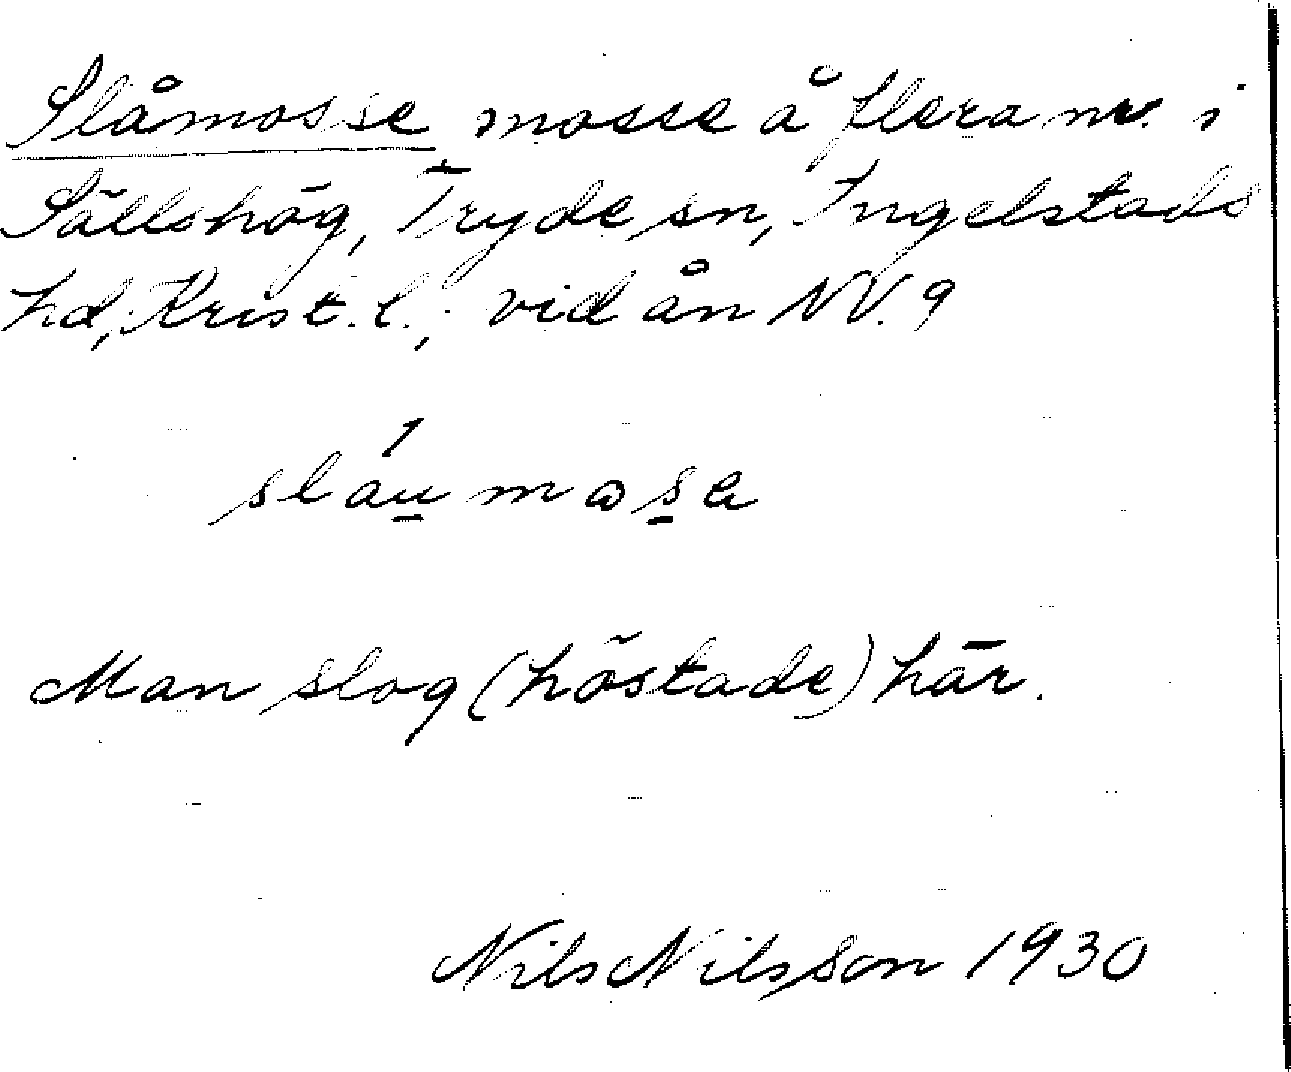 Slåmosse mosse å flera nr. i
Sällshög, Tryde sn, Ingelstads
hd, Krist. l., vid ån NV. 9
sláu̱mas̱a
Man slog (höstade) här.
Nils Nilsson 1930